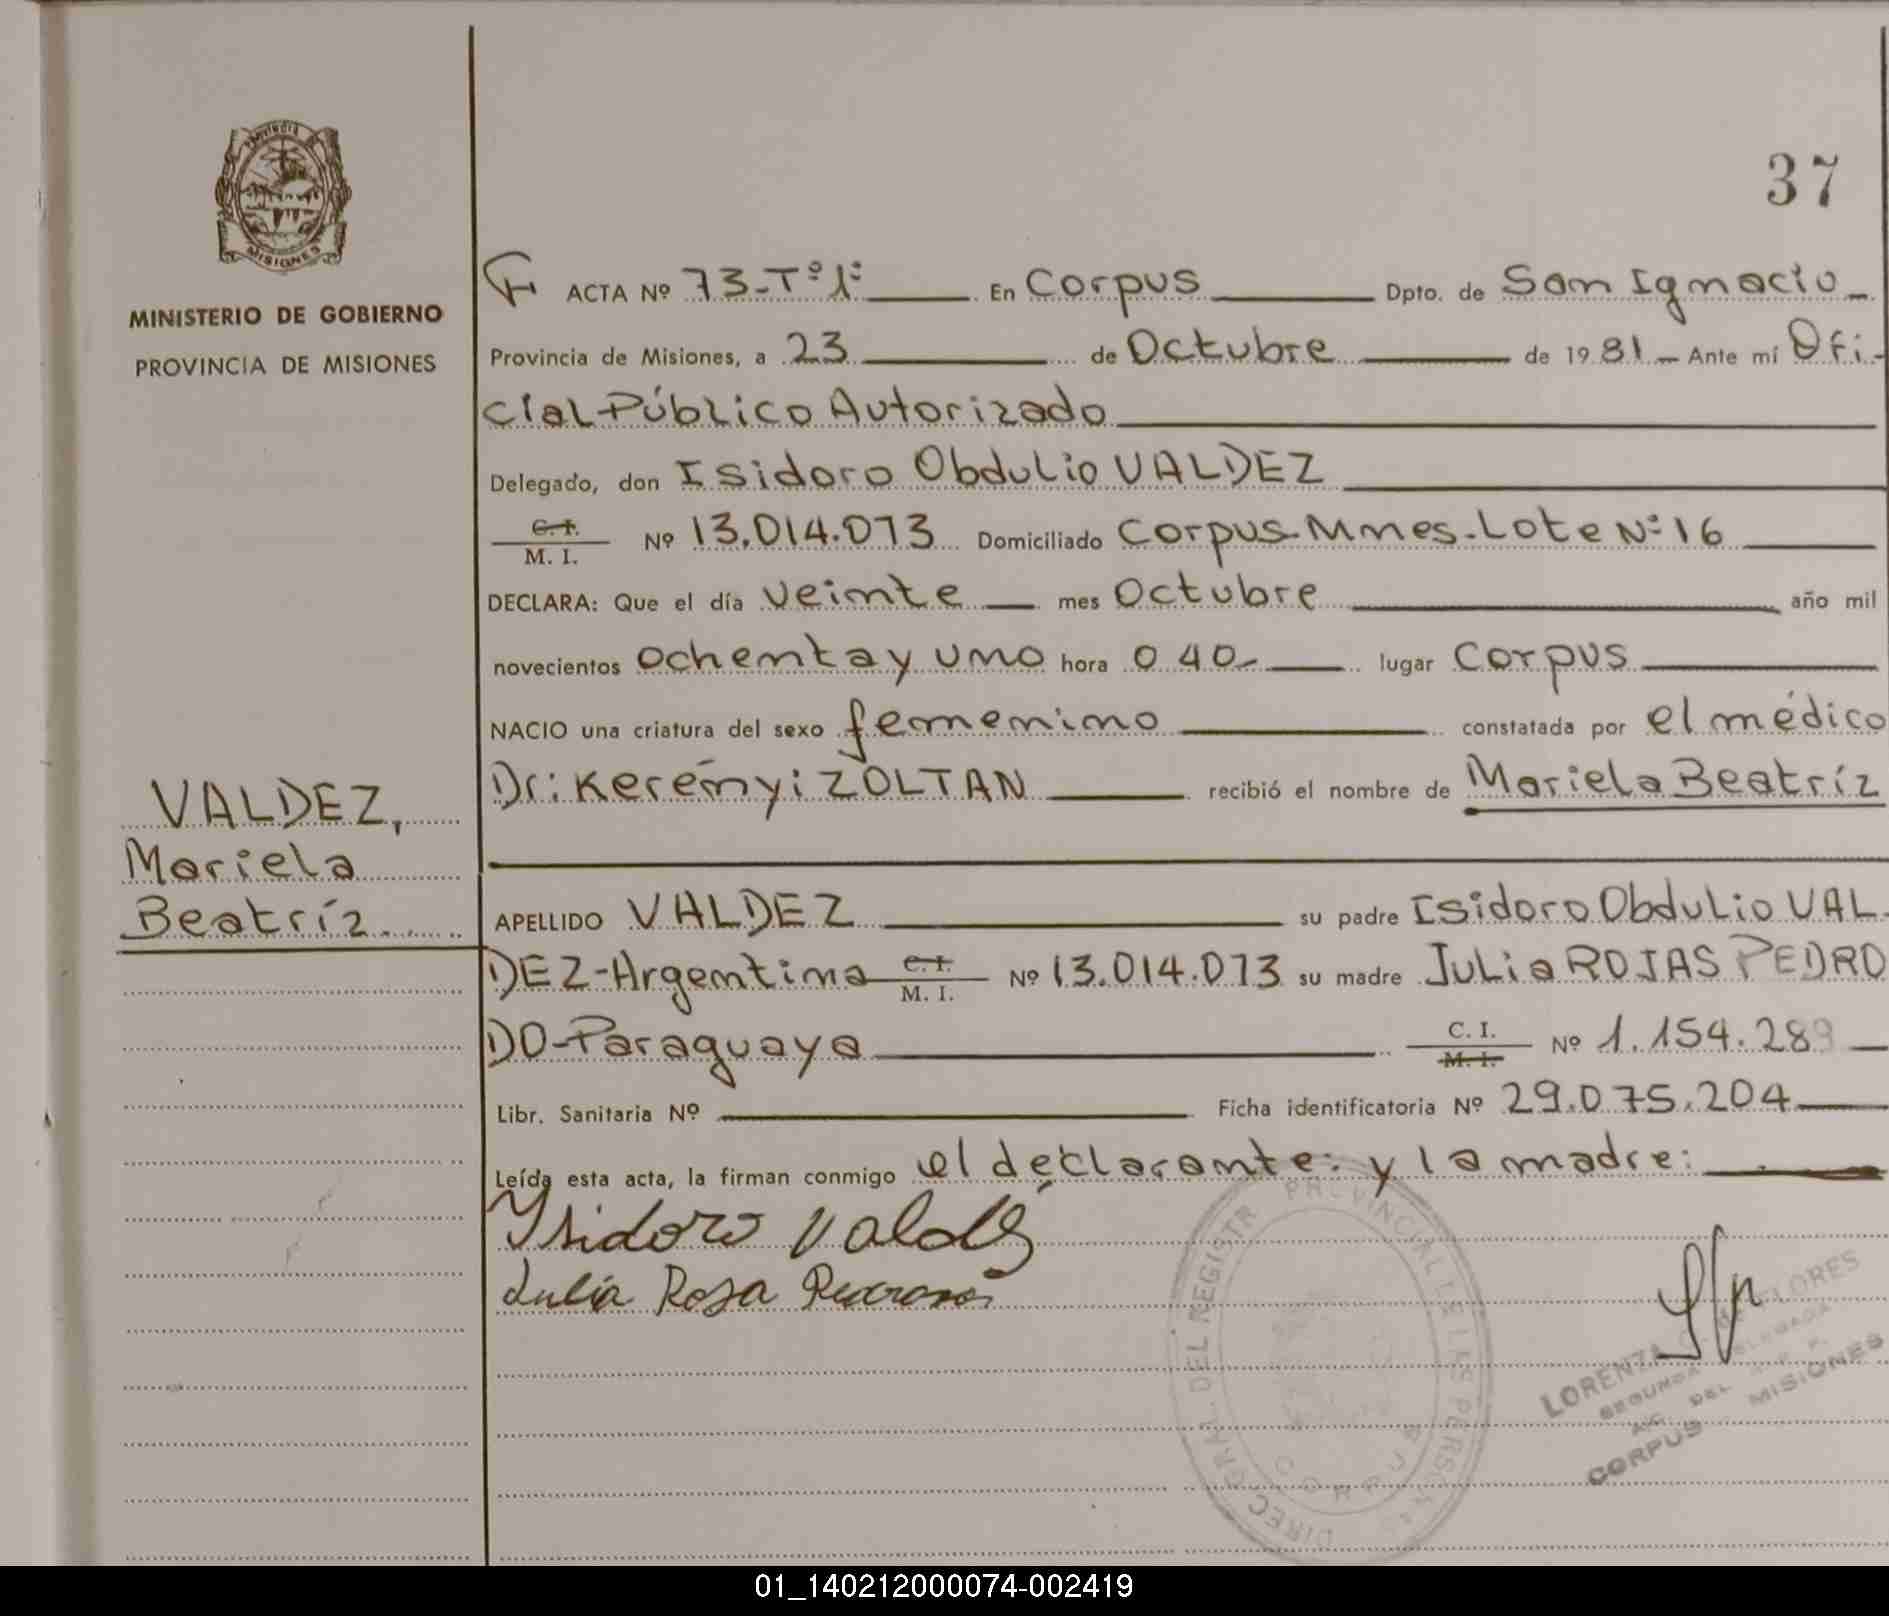 37
PROVINCIA
MISIONES
MINISTERIO DE GOBIERNO
PROVINCIA DE MISIONES
F ACTA Nº 73-Tº1º En Corpus Dpto. de San Ignacio
Provincia de Misiones, a 23 de Octubre de 1981 Ante mí Ofi-
cial Público Autorizado
Delegado, don Isidoro Obdulio VALDEZ
C. I. M. I. Nº 13.014.073 Domiciliado Corpus-Mnes-Lote Nº 16
DECLARA: Que el día veinte mes Octubre año mil
novecientos ochenta y uno hora 0 40 lugar Corpus
NACIO una criatura del sexo femenino constatada por el médico
Dr: Kerényi ZOLTAN recibió el nombre de Mariela Beatríz
VALDEZ,
Mariela
Beatríz
APELLIDO VALDEZ su padre Isidoro Obdulio VAL-
DEZ-Argentina C. I. M. I. Nº 13.014.073 su madre Julia ROJAS PEDRO
DO-Paraguaya C. I. M. I. Nº 1.154.289
Libr. Sanitaria Nº Ficha identificatoria Nº 29.075.204
Leída esta acta, la firman conmigo el declarante: y la madre:
Isidoro Valdéz
Julia Rosa
DIREC. GRAL. DEL REGISTR PROVINCIAL DE LAS PERSONAS
CORPUS
LORENZA FLORES
SEGUNDA DELEGADA
DEL R. P. P.
CORPUS MISIONES
01_140212000074-002419